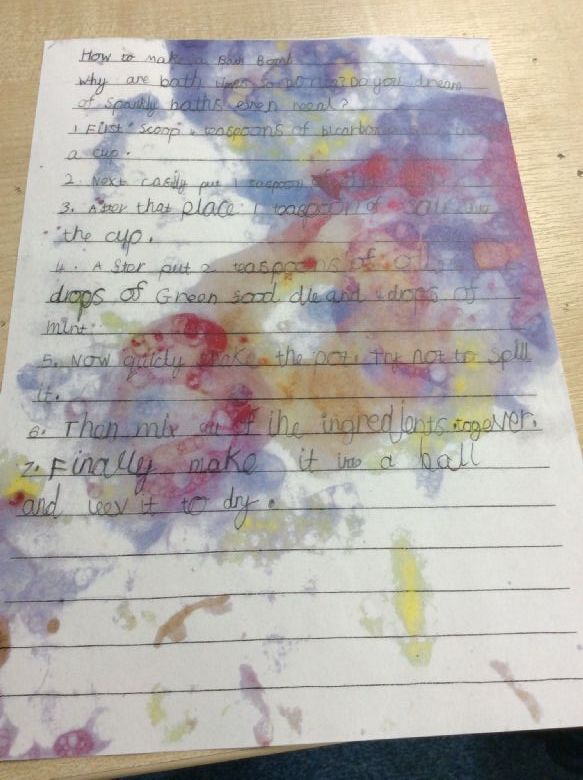 How to make a Bath Bomb
Why are bath times so Do you dream
of sparkly baths even need?
1. First scoop teaspoons of bicarbon in
a cup.
2. Next easily put 1 teaspoon of
3. After that place 1 teaspoon of salt
the cup.
4. After put 2 teaspoons of
drops of Green food die and drops of
mint.
5. Now quickly shake the pot. try not to spill
it.
6. Then mix all of the ingredients together.
7. Finally make it into a ball
and leev it to dry.